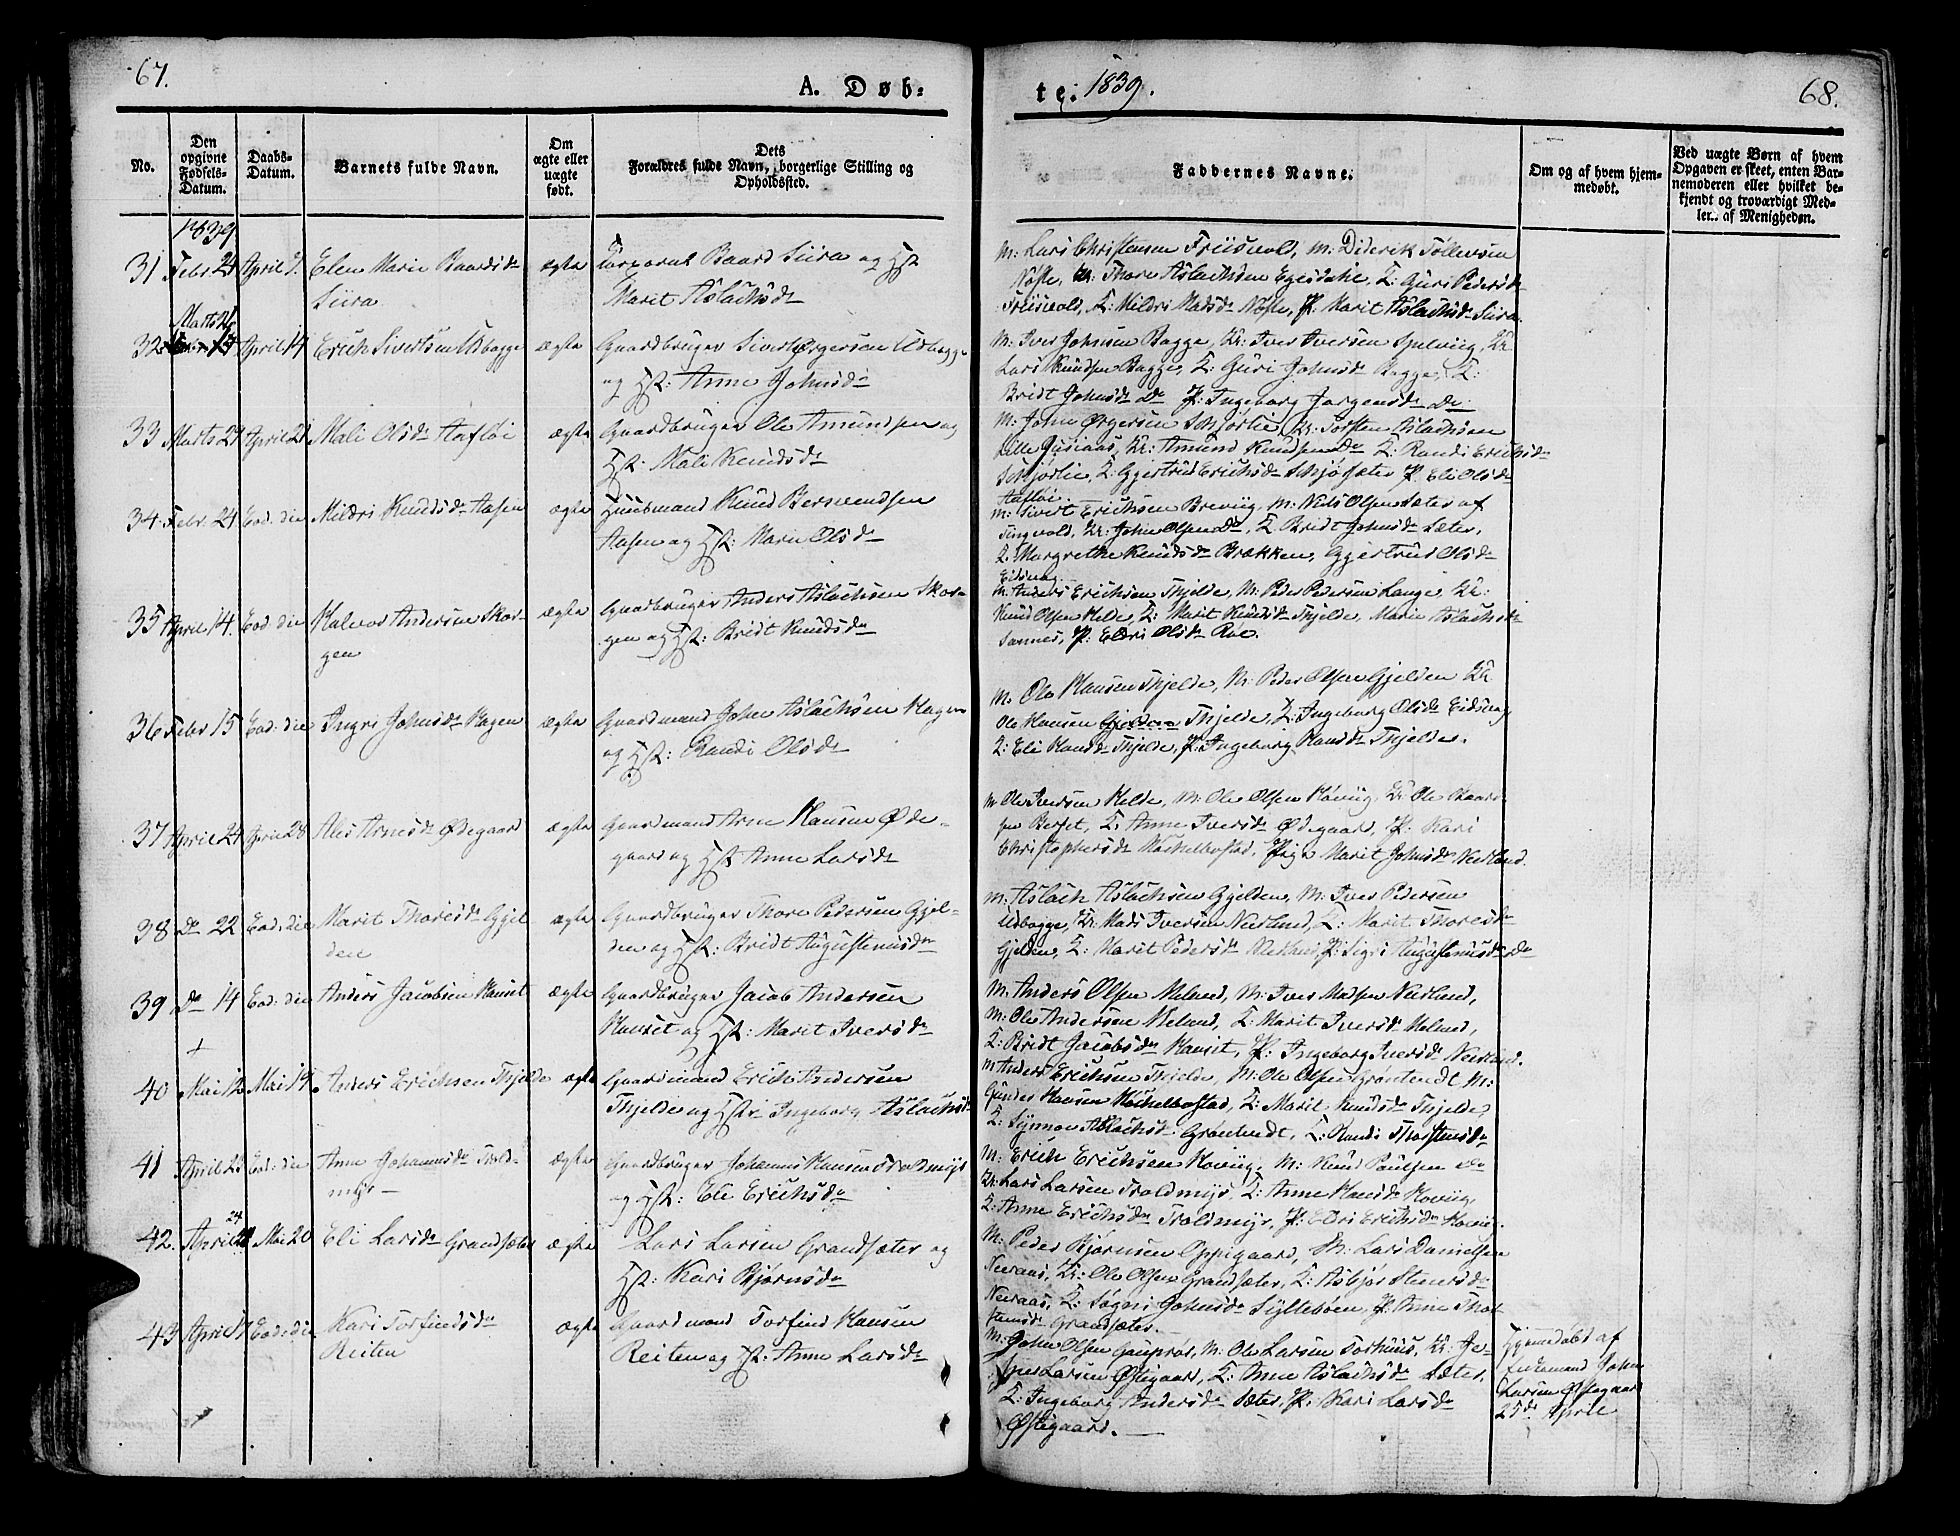 67.
A. Døb-
te. 1839.
68.
No.
Den opgivne Fødsels-Datum.
Daabs-Datum.
Barnets fulde Navn.
Om ægte eller uægte født.
Dets Forældres fulde Navn, borgerlige Stilling og Opholdssted.
Faddernes Navne.
Om og af hvem hjem-medøbt.
Ved uægte Børn af hvem Opgaven er skeet, enten Bar-nemoderen eller hvilket be-kjendt og troværdigt Med-lem af Menigheden.
1839
31 Febr 21 April 7. Elen Marie Baardsdr ægte Corporal Baard Siira og Hst
Siira Marit Aslachsdr
M: Lars Christensen Friisvold, M. Diderik Tøllevsen
Nøste, U: Thore Aslachsen Egesdahl, K: Guri Pedersdr
Friisvold, K: Mildri Madsdr Nøste, P. Marit Aslachsdr Siira
Marts 21
32 April 14 Erich Sivertsen Udbagge ægte Gaardbruger Sivert Ørgersen Udbagge
og Hst: Anne Johnsdr
M. Iver Johnsen Bagge, U: Iver Iversen Spelviig, U:
Lars Knudsen Bagge, K: Guri Johnsdr Bagge, K:
Bridt Johnsdr Do P. Ingeborg Jørgensdr Do
33 Marts 24 April 21 Mali Olsdr Aafløi ægte Gaardbruger Ole Amundsen og
Hst: Mali Knudsdr
M: John Ørgersen Schjørlie, U: Torsten Aslachsen
Lille Gusiaas, U: Amund Knudsen Do K: Randi Erichsdr
Schjørlie, K: Gjertrud Erichsdr Schjøsæter P. Eli Olsdr
Aafløi.
34 Febr. 24 Eod: die Mildri Knudsdr Aasen ægte Huusmand Knud Bersvendsen
Aasen og Hst: Marie Olsdr
M: Sivert Erichsen Breviig, M: Niels Olsen Sæter af
Tingvold, U: John Olsen Do, K Bridt Johnsdr Sæter,
K: Margrethe Knudsdr Brækken, Gjertrud Olsdr
Eidsvaag
35 April 14. Eod: die Halvor Andersen Skor- ægte Gaardbruger Anders Aslachsen Skor-
gen gen og Hst: Bridt Knudsdr
M. Anders Erichsen Thjelde, M: Peder Pedersen Lange, U:
Knud Olsen Helde, K: Marit Knudsdr Thjelde, Marie Aslachsdr
Sannes, P: Eldri Olsdr Röe.
36 Febr 15 Eod: die Ingri Johnsdr Hagen ægte Gaardmand John Aslachsen Hagen
og Hst: Randi Olsdr
M. Ole Hansen Thjelde, M: Peder Olsen Gjelden U:
Ole Hansen Thjelde, K: Ingeborg Olsdr Eidsvaag
K: Eli Hansdr Thjelde, P: Ingeborg Hansdr Thjelde.
37 April 24 April 28 Ales Arnesdr Ødegaard ægte Gaardmand Arne Hansen Øde-
gaard og Hst Anne Larsdr
M. Ole Iversen Helde, M: Ole Olsen Høviig, U: Ole Baard-
sen Berset, K: Anne Iversdr Ødegaard, P: Kari
Christophersdr Hochelbostad, Pige Marit Johnsdr Neerland.
38 Do 22 Eod: die Marit Thoresdr Gjel ægte Gaardbruger Thore Pedersen Gjel-
den den og Hst: Bridt Augustenusdr
M: Aslach Aslachsen Gjelden, M: Iver Pedersen
Udbagge, U: Mads Iversen Neerland, K: Marit Thoresdr
Gjelden, K: Marit Pedersdr P: Sigri Augustenusdr Do
39 Do 14 Eod: die Anders Jacobsen Hanset ægte Gaardbruger Jacob Andersen
Hanset og Hst: Marit Iversdr
M. Anders Olsen Meland, M: Iver Madsen Neerland,
M: Ole Andersen Meland, K: Marit Iversdr Meland,
K: Bridt Jacobsdr Hanset, P: Ingeborg Iversdr Neerland.
+
40 Mai 12 Mai 19 Anders Erichsen Thjelde ægte Gaardmand Erich Andersen
Thjelde og Hst: Ingeborg Aslachsdr
M Anders Erichsen Thjelde, M: Ole Olsen Grøntvedt M:
Gunder Hansen Hochelbostad, K: Marit Knudsdr Thjelde,
K: Synnøv Aslachsdr Grøntvedt, K: Randi Thorstensdr
41 April 25 Eod: die Anne Johannesdr Trold- ægte Gaardbruger Johannes Hansen Troldmyr
myr og Hst: Eli Erichsdr
M: Erich Erichsen Høviig, M: Knud Paulsen do
U: Lars Larsen Troldmyr, K: Anne Hansdr Høviig,
K: Anne Erichsdr Troldmyr, P: Eldri Erichsdr Høviig.
42. April 24 Mai 20 Eli Larsdr Grandsæter ægte Lars Larsen Grandsæter og
Hst: Kari Bjørnsdr
M: Peder Bjørnsen Oppigaard, M: Lars Danielsen
Neeraas, U: Ole Olsen Grandsæter, K: Asbjør Stenersdr
Neeraas, K: Søgni Johnsdr Syltebøen, P. Anne Thor
Grandsæter.
43 April 17 Eod: die Kari Torfindsdr ægte Gaardmand Torfind Hansen
Reiten Reiten og Hst: Anne Larsdr
M: John Olsen Gauprør, M: Ole Larsen Torhuus, U: Je-
sper Larsen Østigaard, K: Anne Aslachsdr Sæter,
K: Ingeborg Andersdr Sæter, P: Kari Larsdr
Østigaard.
Hjemmedøbt af
John
Larsen Østigaard
25de April